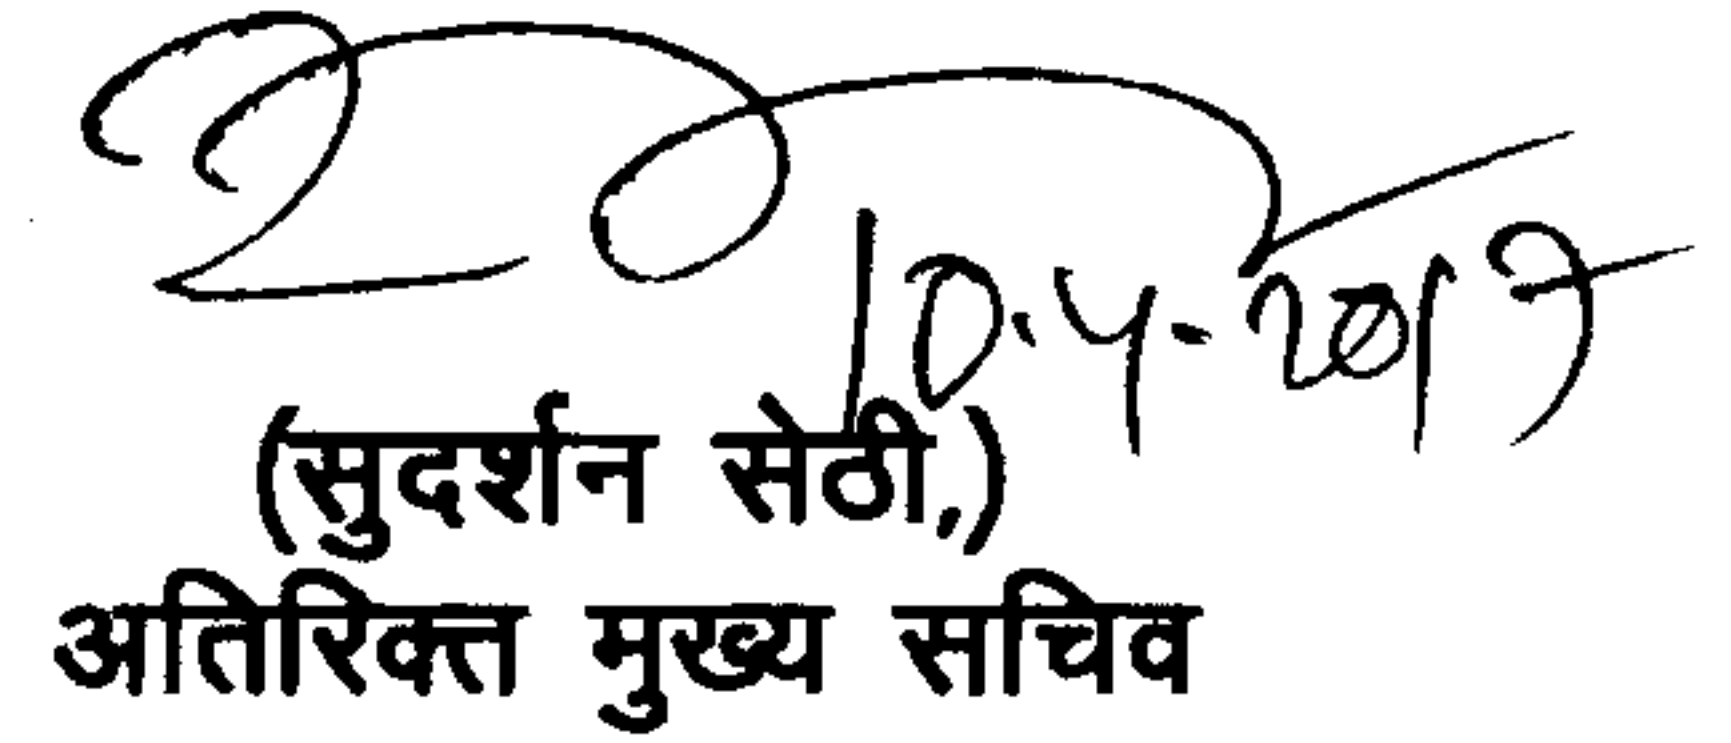 10.4.2017
(सुदर्शन सेठी,)
अतिरिक्त मुख्य सचिव